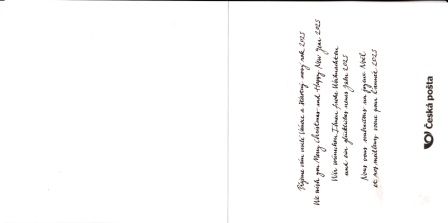 Přejeme vám veselé Vánoce a šťastný nový rok 2025
We wish you Merry Christmas and Happy New Year 2025
Wir wünschen Ihnen frohe Weihnachten
und ein glückliches neues Jahr 2025
Nous vous souhaitons un joyeux Noël
et nos meilleurs voeux pour l'année 2025
Česká pošta